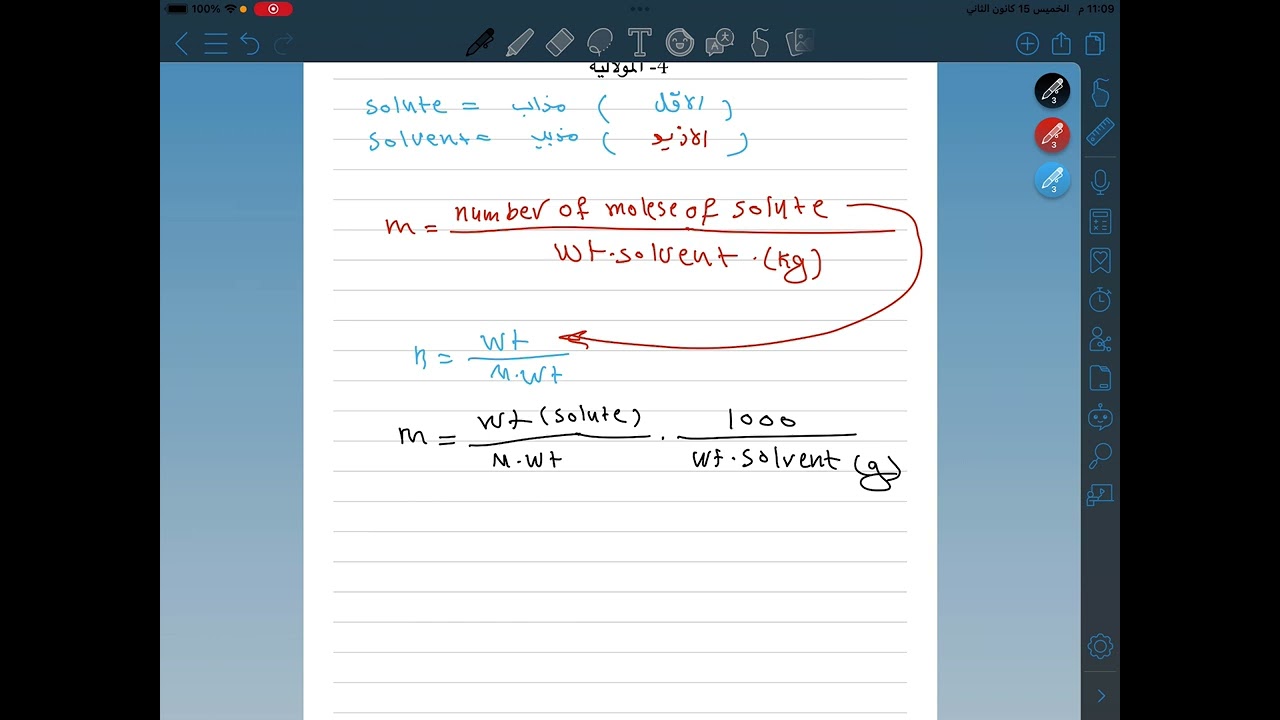 100%
11:09 م الخميس 15 كانون الثاني
4- المولالية
solute = مذاب ( الاقل )
solvent = مذيب ( الازيد )
m = number of molese of solute
wt.solvent.(kg)
n = wt
M.wt
m = wt (solute) . 1000
M.wt wt.solvent (g)
3
3
3